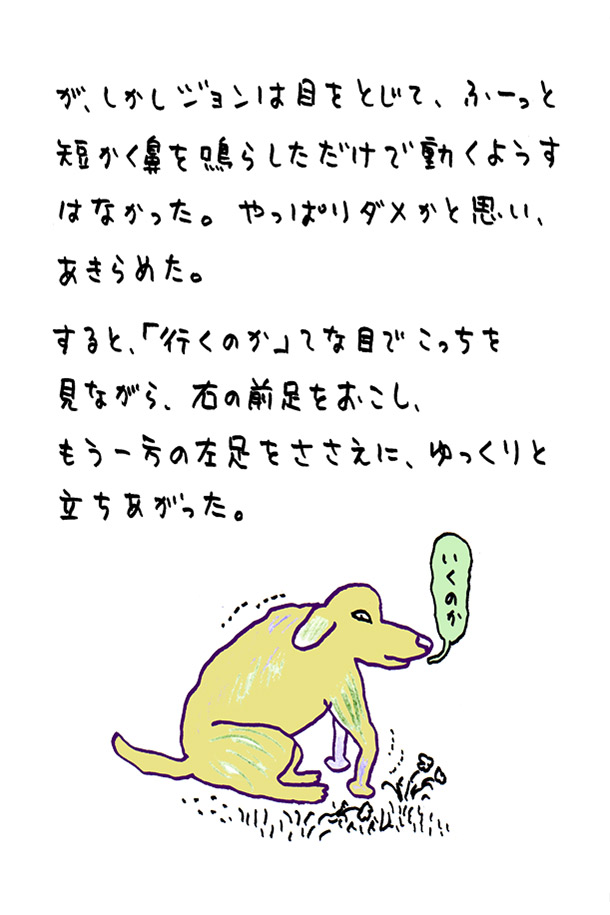 が、しかしジョンは目をとじて、ふーっと
短かく鼻を鳴らしただけで動くようす
はなかった。やっぱりダメかと思い、
あきらめた。
すると、「行くのか」てな目でこっちを
見ながら、右の前足をおこし、
もう一方の左足をささえに、ゆっくりと
立ちあがった。
いくのか